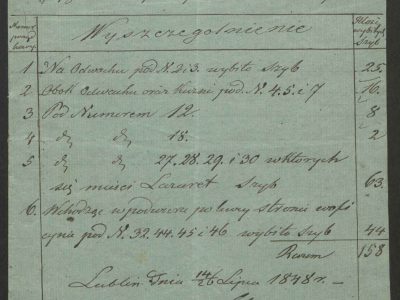 Numer
Wyszczególnienie
Ilość wybitych Szyb
1 Na Odwachu pod N. 2 i 3. wybito Szyb 25.
2 Obok Odwachu oraz kuźni pod. N. 4. 5. i 7 16.
3 Pod Numerem 12. 8
4 dº dº 18. 2
5 dº dº 27. 28. 29. i 30 w których
się mieści Lazaret Szyb 63.
6. Wchodząc w podwórze po lewej stronie
pod N. 32. 44. 45 i 46 wybito szyb 44
Razem 158
Lublin Dnia 14/26 Lipca 1848 r.